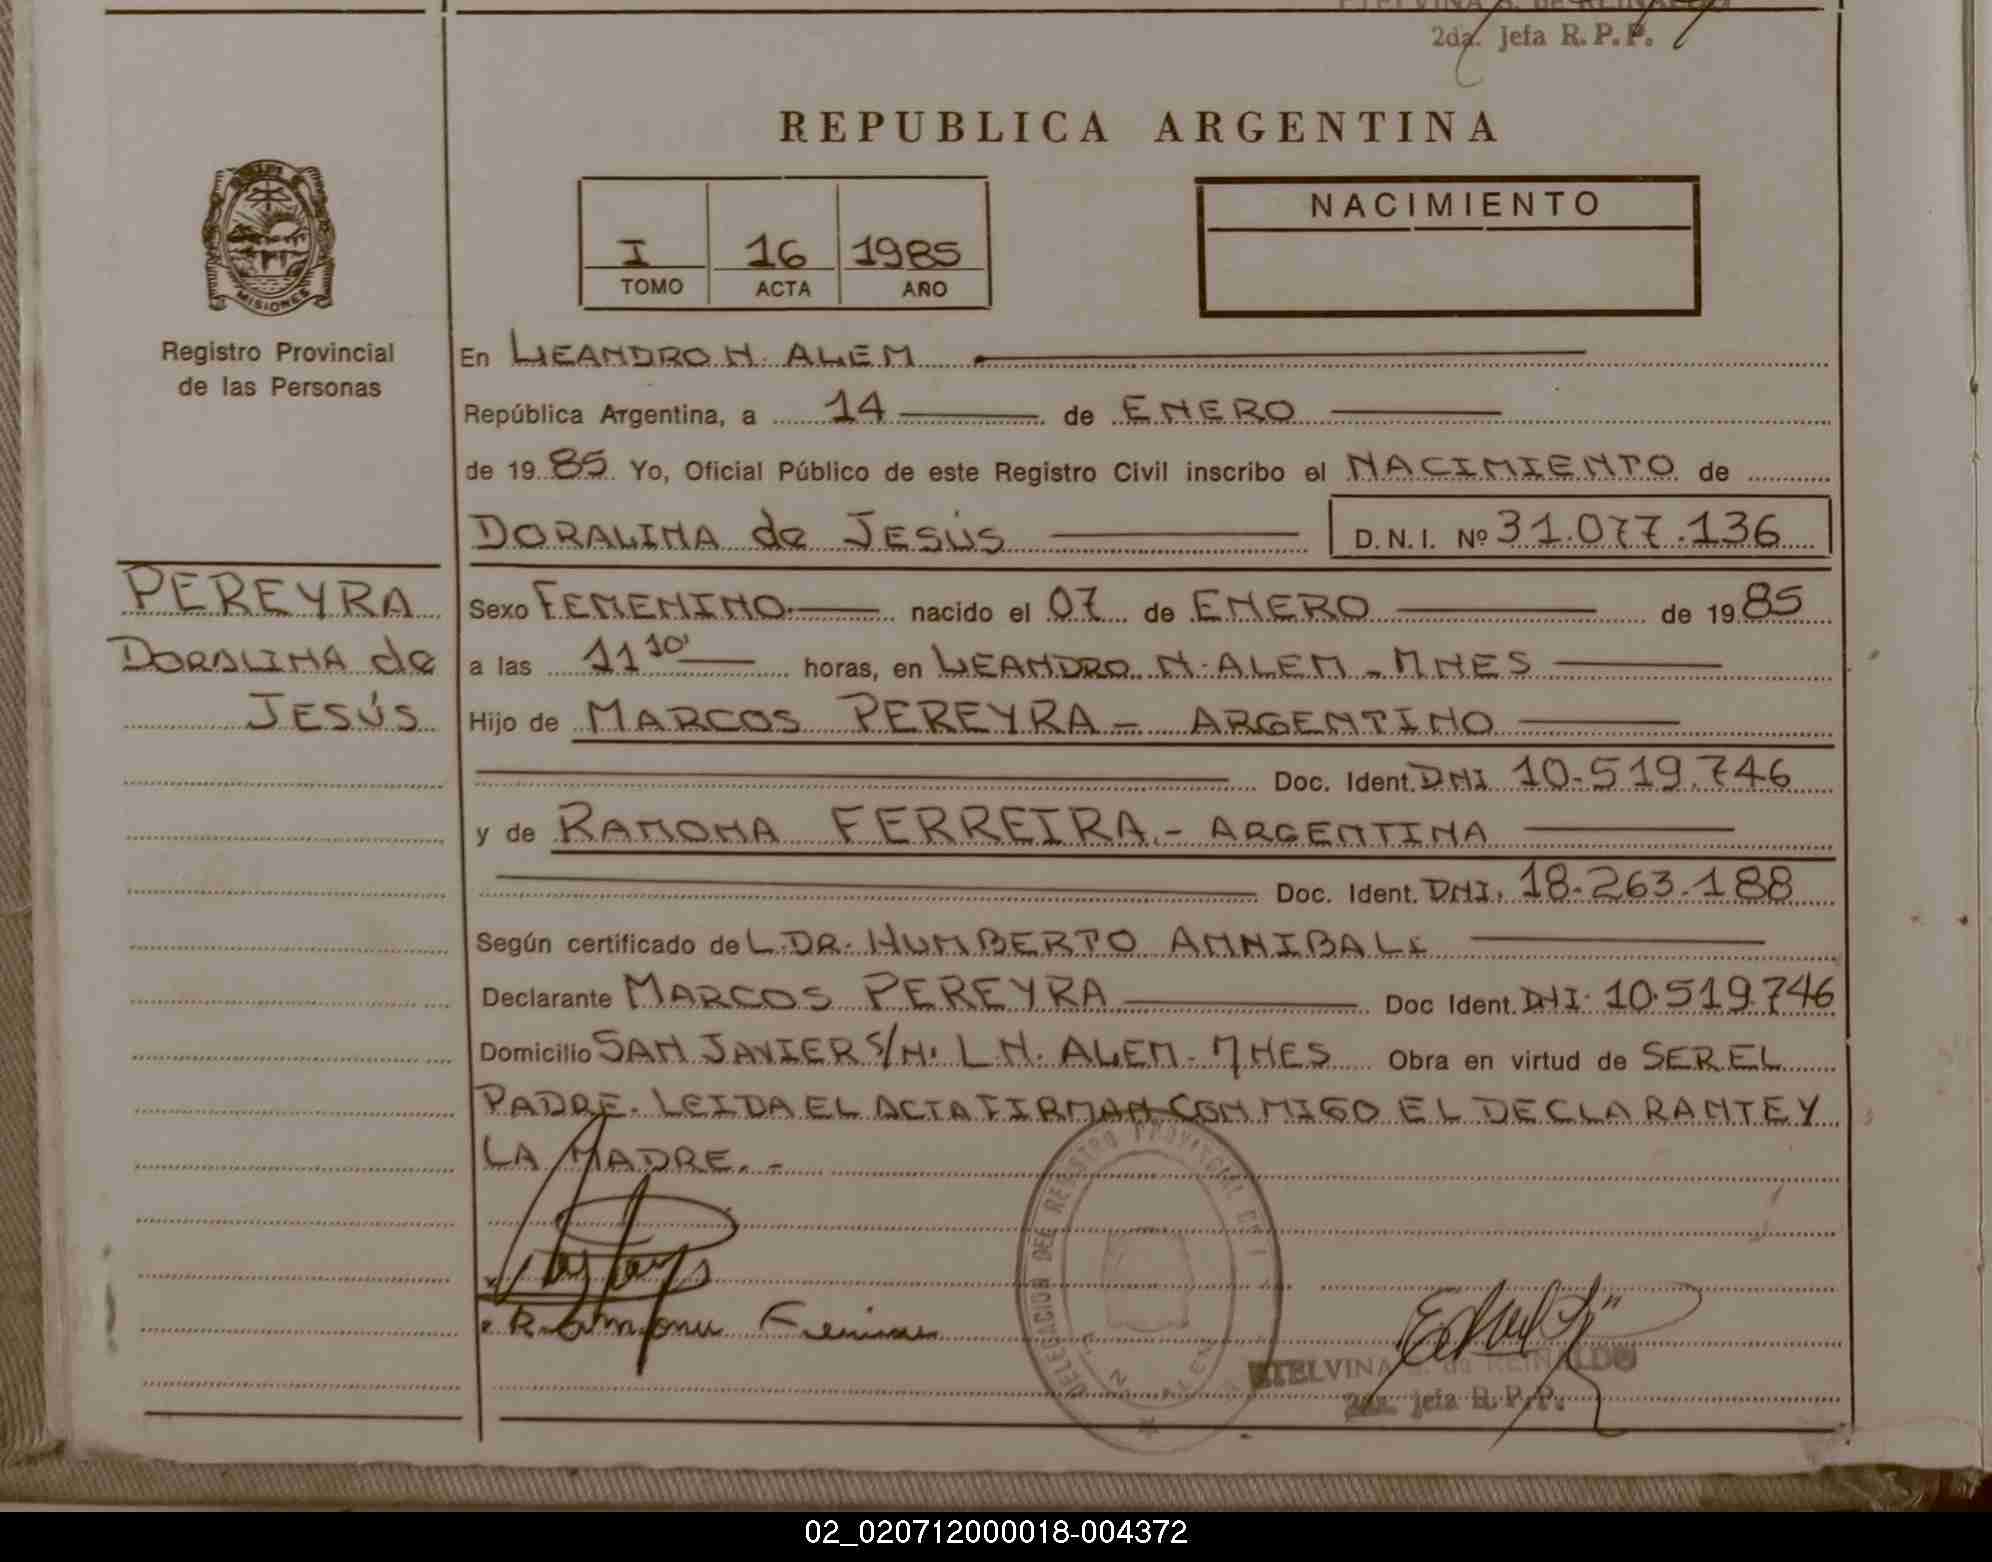 2da. Jefa R.P.P.
REPUBLICA ARGENTINA
NACIMIENTO
I 16 1985
TOMO ACTA AÑO
MISIONES
Registro Provincial
de las Personas
En LEANDRO N. ALEM
República Argentina, a 14 de ENERO
de 1985 Yo, Oficial Público de este Registro Civil inscribo el NACIMIENTO de
DORALINA de JESÚS D.N.I. Nº 31.077.136
PEREYRA
DORALINA de
JESÚS
Sexo FEMENINO nacido el 07 de ENERO de 1985
a las 11 10' horas, en LEANDRO N. ALEM - MNES
Hijo de MARCOS PEREYRA - ARGENTINO
Doc. Ident. DNI 10.519.746
y de RAMONA FERREIRA.- ARGENTINA
Doc. Ident. DNI. 18.263.188
Según certificado de L.DR. HUMBERTO ANNIBALI
Declarante MARCOS PEREYRA Doc Ident. DNI. 10.519.746
Domicilio SAN JAVIER S/N. L.N. ALEM - MNES Obra en virtud de SER EL
PADRE. LEIDA EL ACTA FIRMAN CON MIGO EL DECLARANTE Y
LA MADRE. -
DELEGACION DEL REGISTRO PROVINCIAL DE
L. N. ALEM
Ramona
ETELVINA S. de REINALDO
2da. jefa R.P.P.
02_020712000018-004372